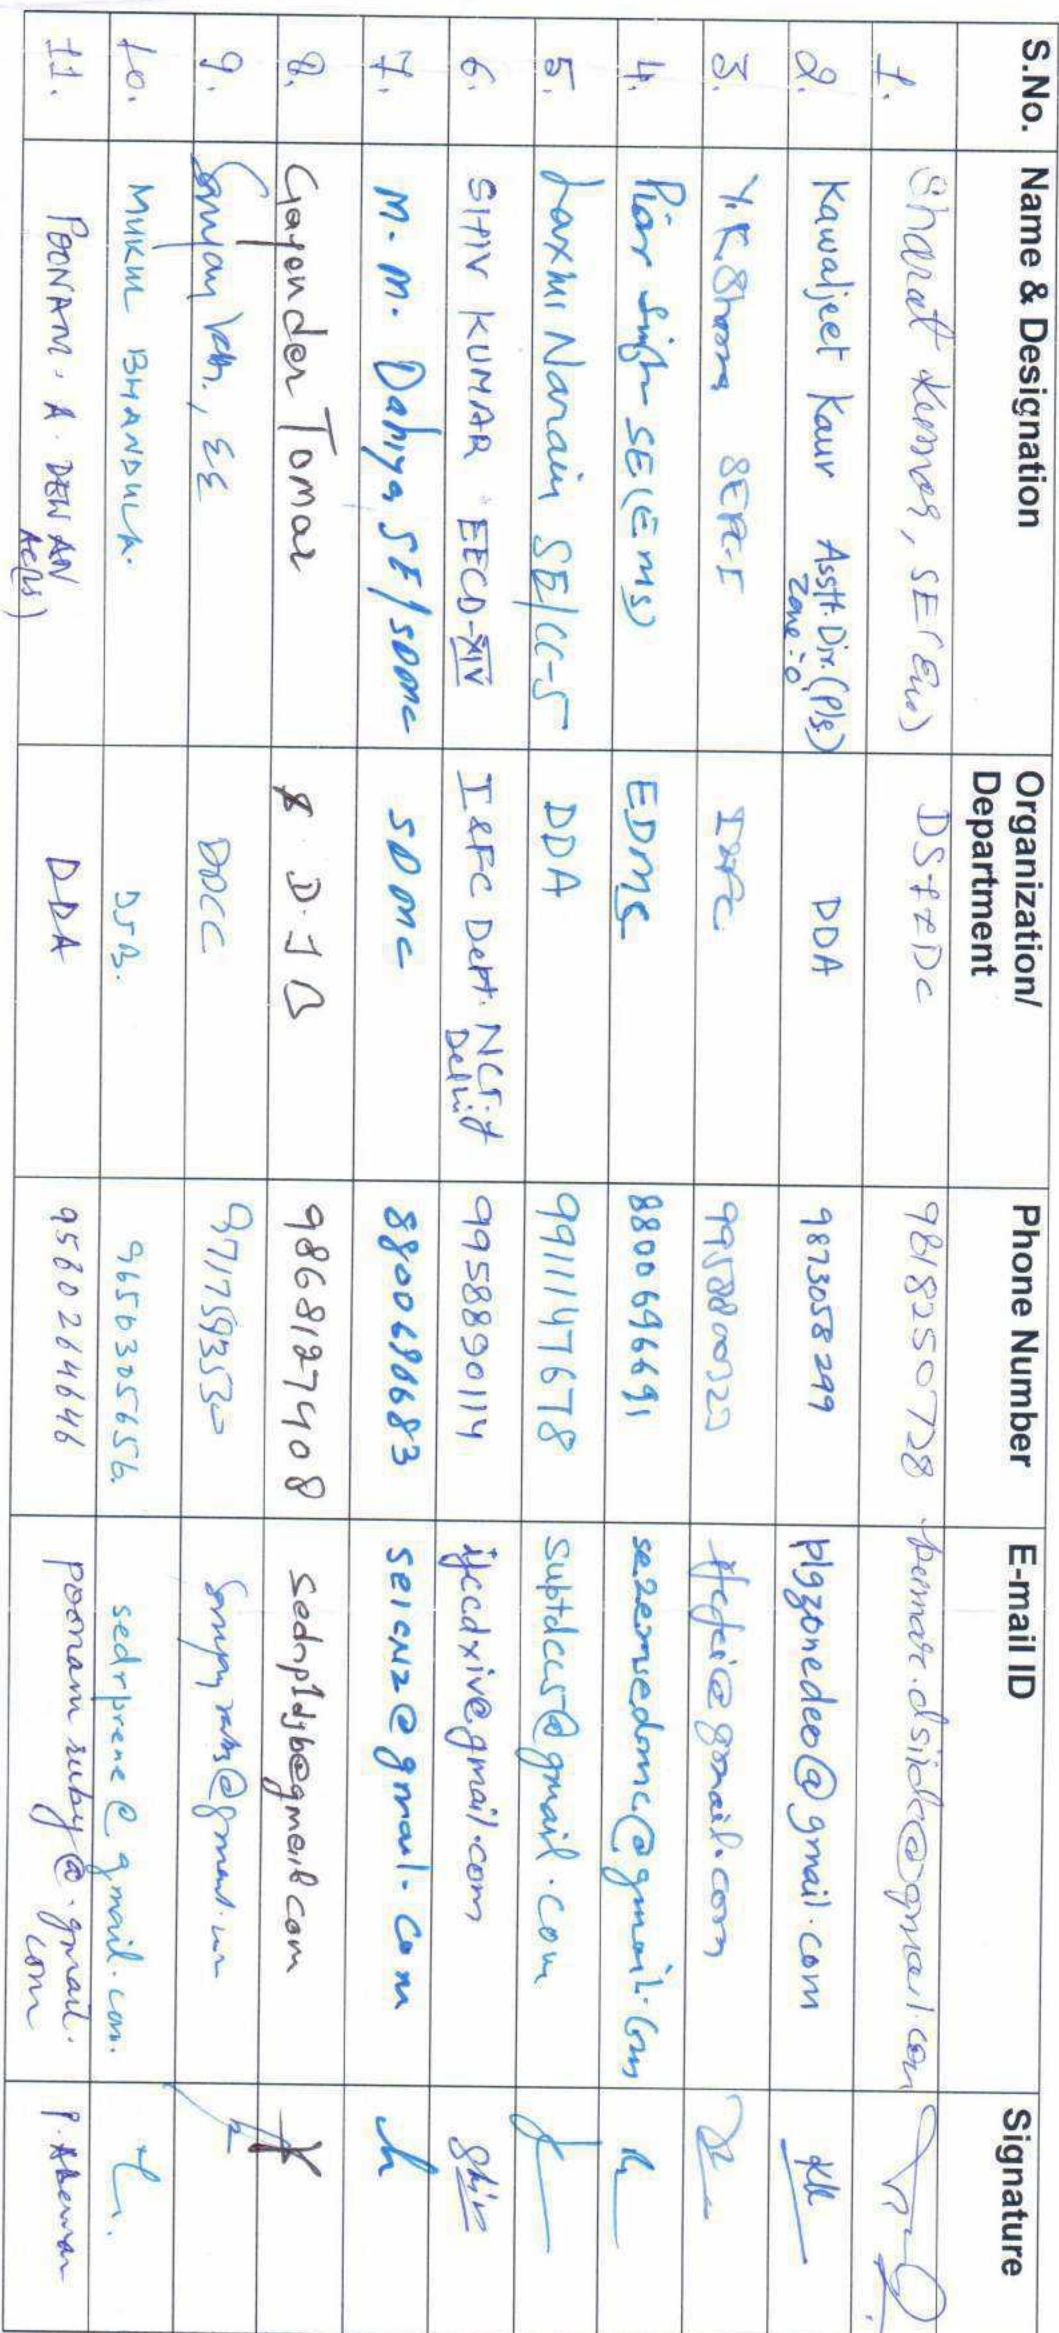 S.No. Name & Designation Organization/ Department Phone Number E-mail ID Signature
1. Sharat Kumar, SE( DSIIDC 9818250728 kumar.dsiidc@gmail.com
2. Kawaljeet Kaur Asstt. Dir. (Plg) Zone:-O DDA 9873058299 plgzonedeo@gmail.com KK
3. Y.K. Sharma I&FC @gmail.com
4. Piar Singh SE(Ems) EDMC 8800696691 se2emsedmc@gmail.com
5. Laxmi Narain SE/CC-5 DDA 9911147678 suptdcc5@gmail.com
6. SHIV KUMAR EECD-XIV I&FC Deptt. NCT of Delhi 9958890114 ifccdxiv@gmail.com Shiv
7. M.M. Dahiya SE/SDMC SDMC 8800690683 se1cnz@gmail.com
8. Gajender Tomar D.J.B 9868127408 sedrp1djb@gmail.com
9. EE 9717593530 @gmail.com
10. MUKUL BHANDULA. DJB. 9650305656. sedrprene@gmail.com.
11. POONAM. A. DEWAN DDA 9560264646 poonam ruby@.gmail.com